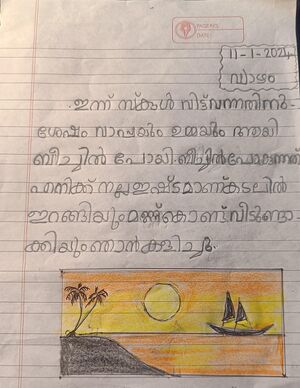 PAGE NO.
DATE:
11-1-2024
വ്യാഴം
ഇന്ന് സ്കൂൾ വിട്ട് വന്നതിനു
ശേഷം വാപ്പയും ഉമ്മയും ആയി
ബീച്ചിൽ പോയി. ബീച്ചിൽ പോകുന്നത്
എനിക്ക് നല്ല ഇഷ്ടമാണ് കടലിൽ
ഇറങ്ങിയും മണ്ണ് കൊണ്ട് വീടുണ്ടാ-
ക്കിയും ഞാൻ കളിച്ചു.